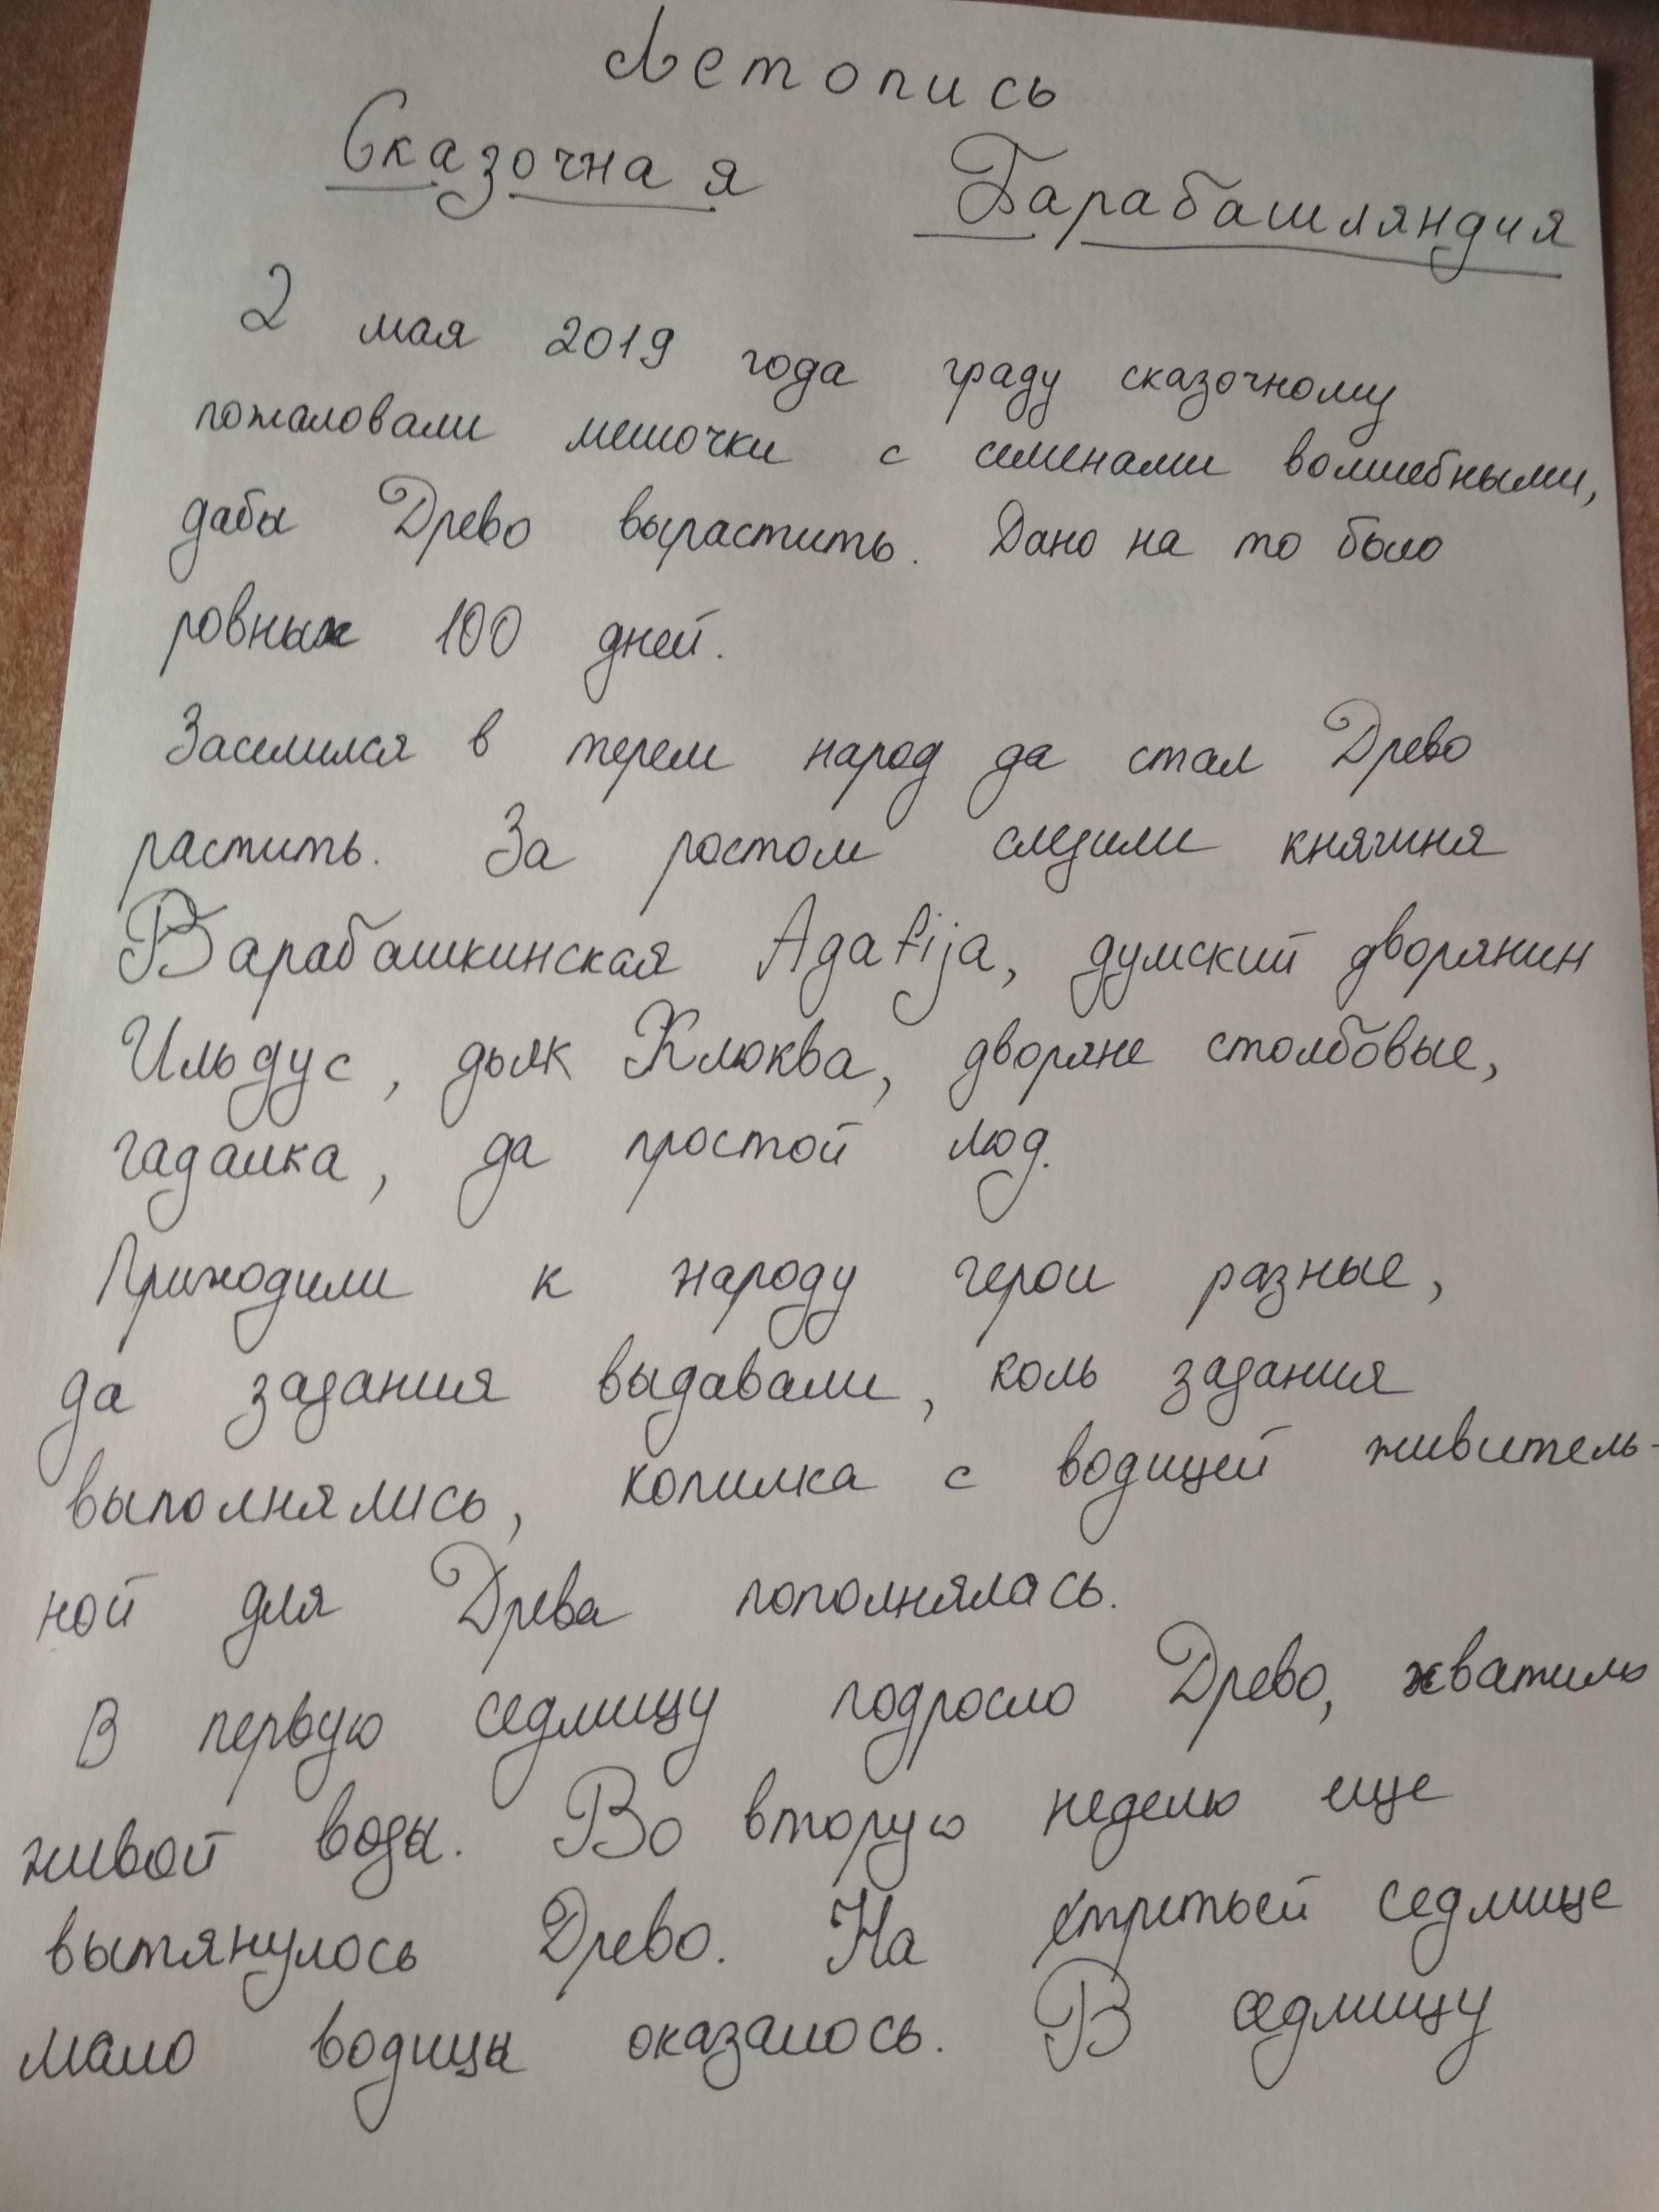 Летопись
Сказочная Барабашляндия
2 мая 2019 года граду сказочному
пожаловали мешочки с семенами волшебными,
дабы Древо вырастить. Дано на то было
ровных 100 дней.
Заселился в терем народ да стал Древо
растить. За ростом следили княгиня
Барабашкинская Agafija, думский дворянин
Ильдус, дьяк Клюква, дворяне столбовые,
гадалка, да простой люд.
Приходили к народу герои разные,
да задания выдавали, коль задания
выполнялись, копилка с водицей живитель-
ной для Древа пополнялась.
В первую седмицу подросло Древо, хватило
живой воды. Во вторую неделю еще
вытянулось Древо. На третьей седмице
мало водицы оказалось. В седмицу